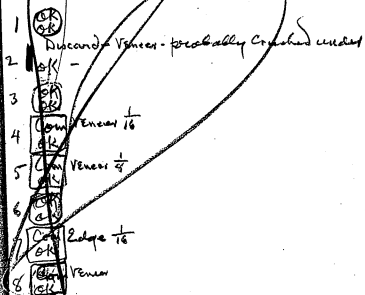 1 OK
OK
Discard - Veneer - probably Crushed under
2 OK -
3 OK
OK
4 Com Veneer 1/16
OK
5 Com Veneer 1/8
OK
6 OK
OK
7 Com Edge 1/16
OK
8 Com Veneer
OK